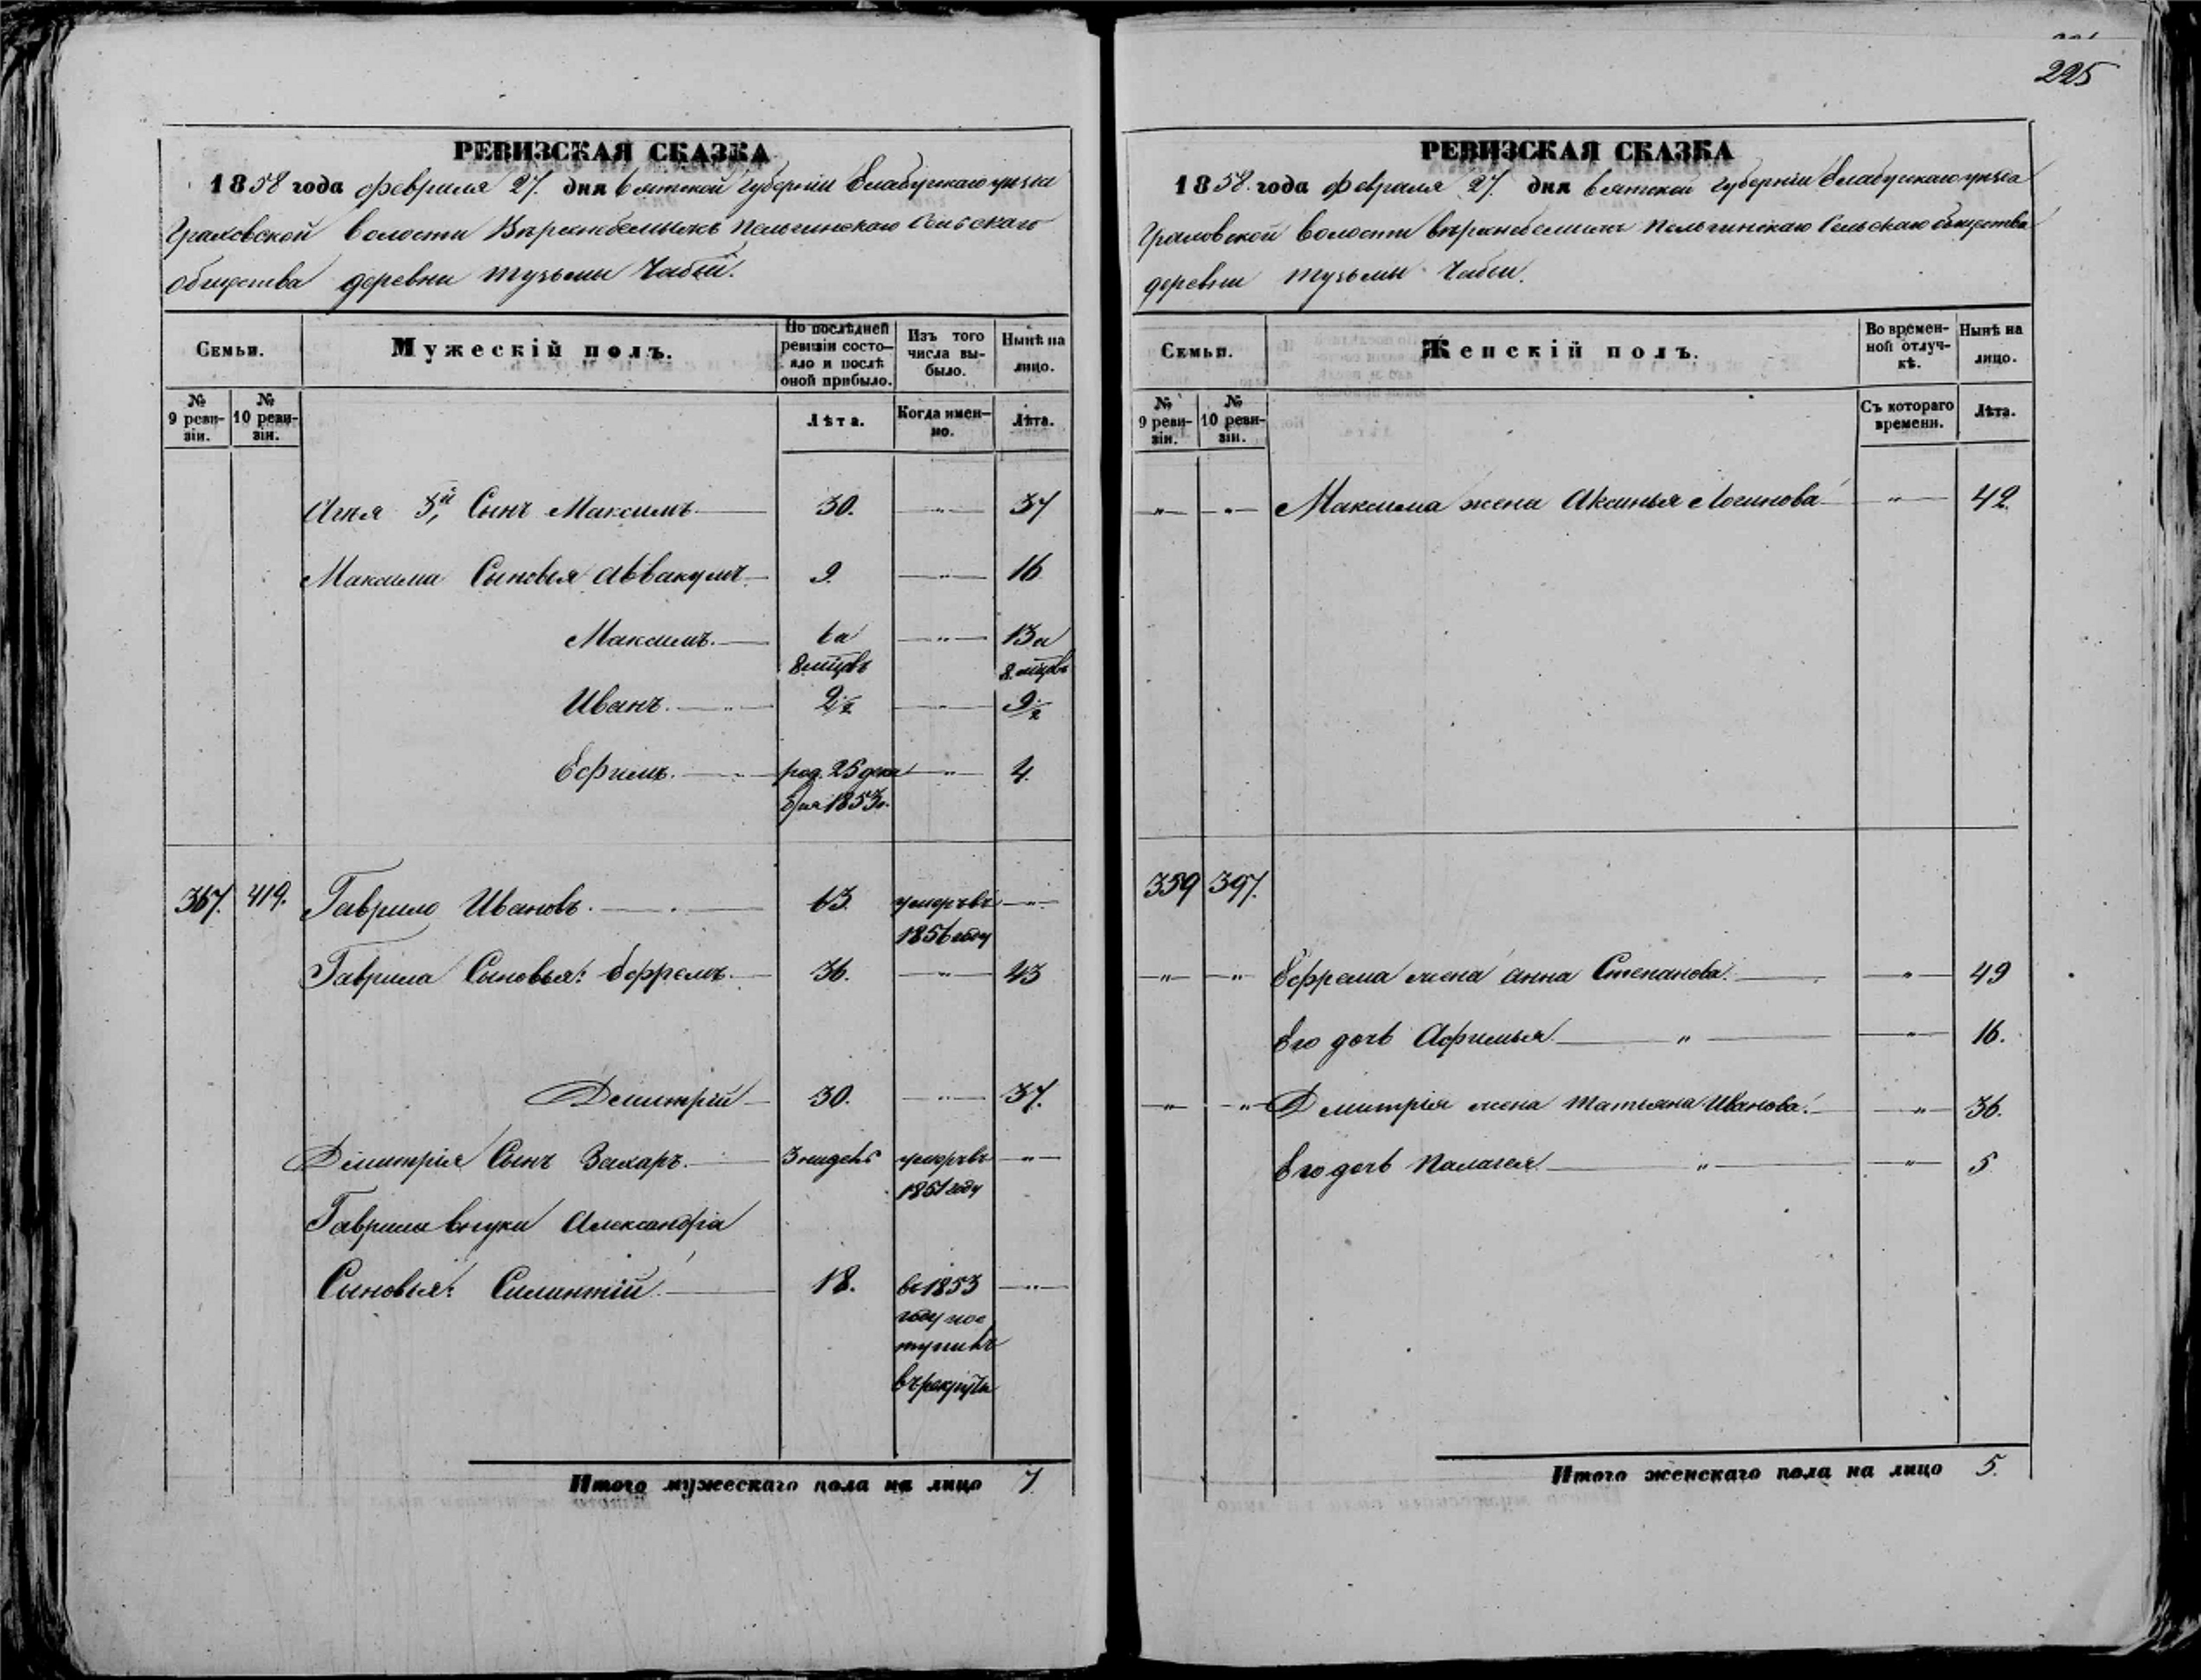 225
РЕВИЗСКАЯ СКАЗКА
1858 года февраля 27. дня Вятской губерніи Елабужскаго уѣзда
Граховской Волости Пельгинскаго Сельскаго
общества деревни Тузьмы Чабьи.
Семьи.
Мужескій полъ.
По послѣдней ревизіи состояло и послѣ оной прибыло.
Изъ того числа выбыло.
Нынѣ на лицо.
№ 9 ревизіи.
№ 10 ревизіи.
Лѣта.
Когда именно.
Лѣта.
3й Сынъ Максимъ 30. " 37
Максима Сыновья Аввакумъ 9. " 16
Максимъ. 6 и 8 мцовъ " 13 и 8 мцовъ
Иванъ. 2 1/2 " 9 1/2
Ефимъ. род. 25 дека " 4.
бря 1853 г.
367. 419. Гаврило Ивановъ. 63. умеръ въ "
1856 году
Гаврила Сыновья: Ефремъ. 36. " 43
Дмитрій 30. " 37.
Дмитрія Сынъ Захаръ. 3 недель умеръ въ "
1851 году
Гаврила внуки Александра
Сыновья: 18. въ 1853 "
году пос
тупилъ
въ рекруты
Итого мужескаго пола на лицо 7
РЕВИЗСКАЯ СКАЗКА
1858. года Февраля 27. дня Вятской губерніи Елабужскаго уѣзда
Граховской Волости Пельгинскаго Сельскаго общества
деревни Тузьмы Чабьи.
Семьи.
Женскій полъ.
Во временной отлучкѣ.
Нынѣ на лицо.
№ 9 ревизіи.
№ 10 ревизіи.
Съ котораго времени.
Лѣта.
" " Максима жена Аксинья Логинова " 42.
359 397.
" " Ефрема жена Анна Степанова. " 49
Его дочь Афимья " " 16.
" " Дмитрія жена Татьяна Иванова. " 36.
Его дочь Палагея " " 5
Итого женскаго пола на лицо 5.